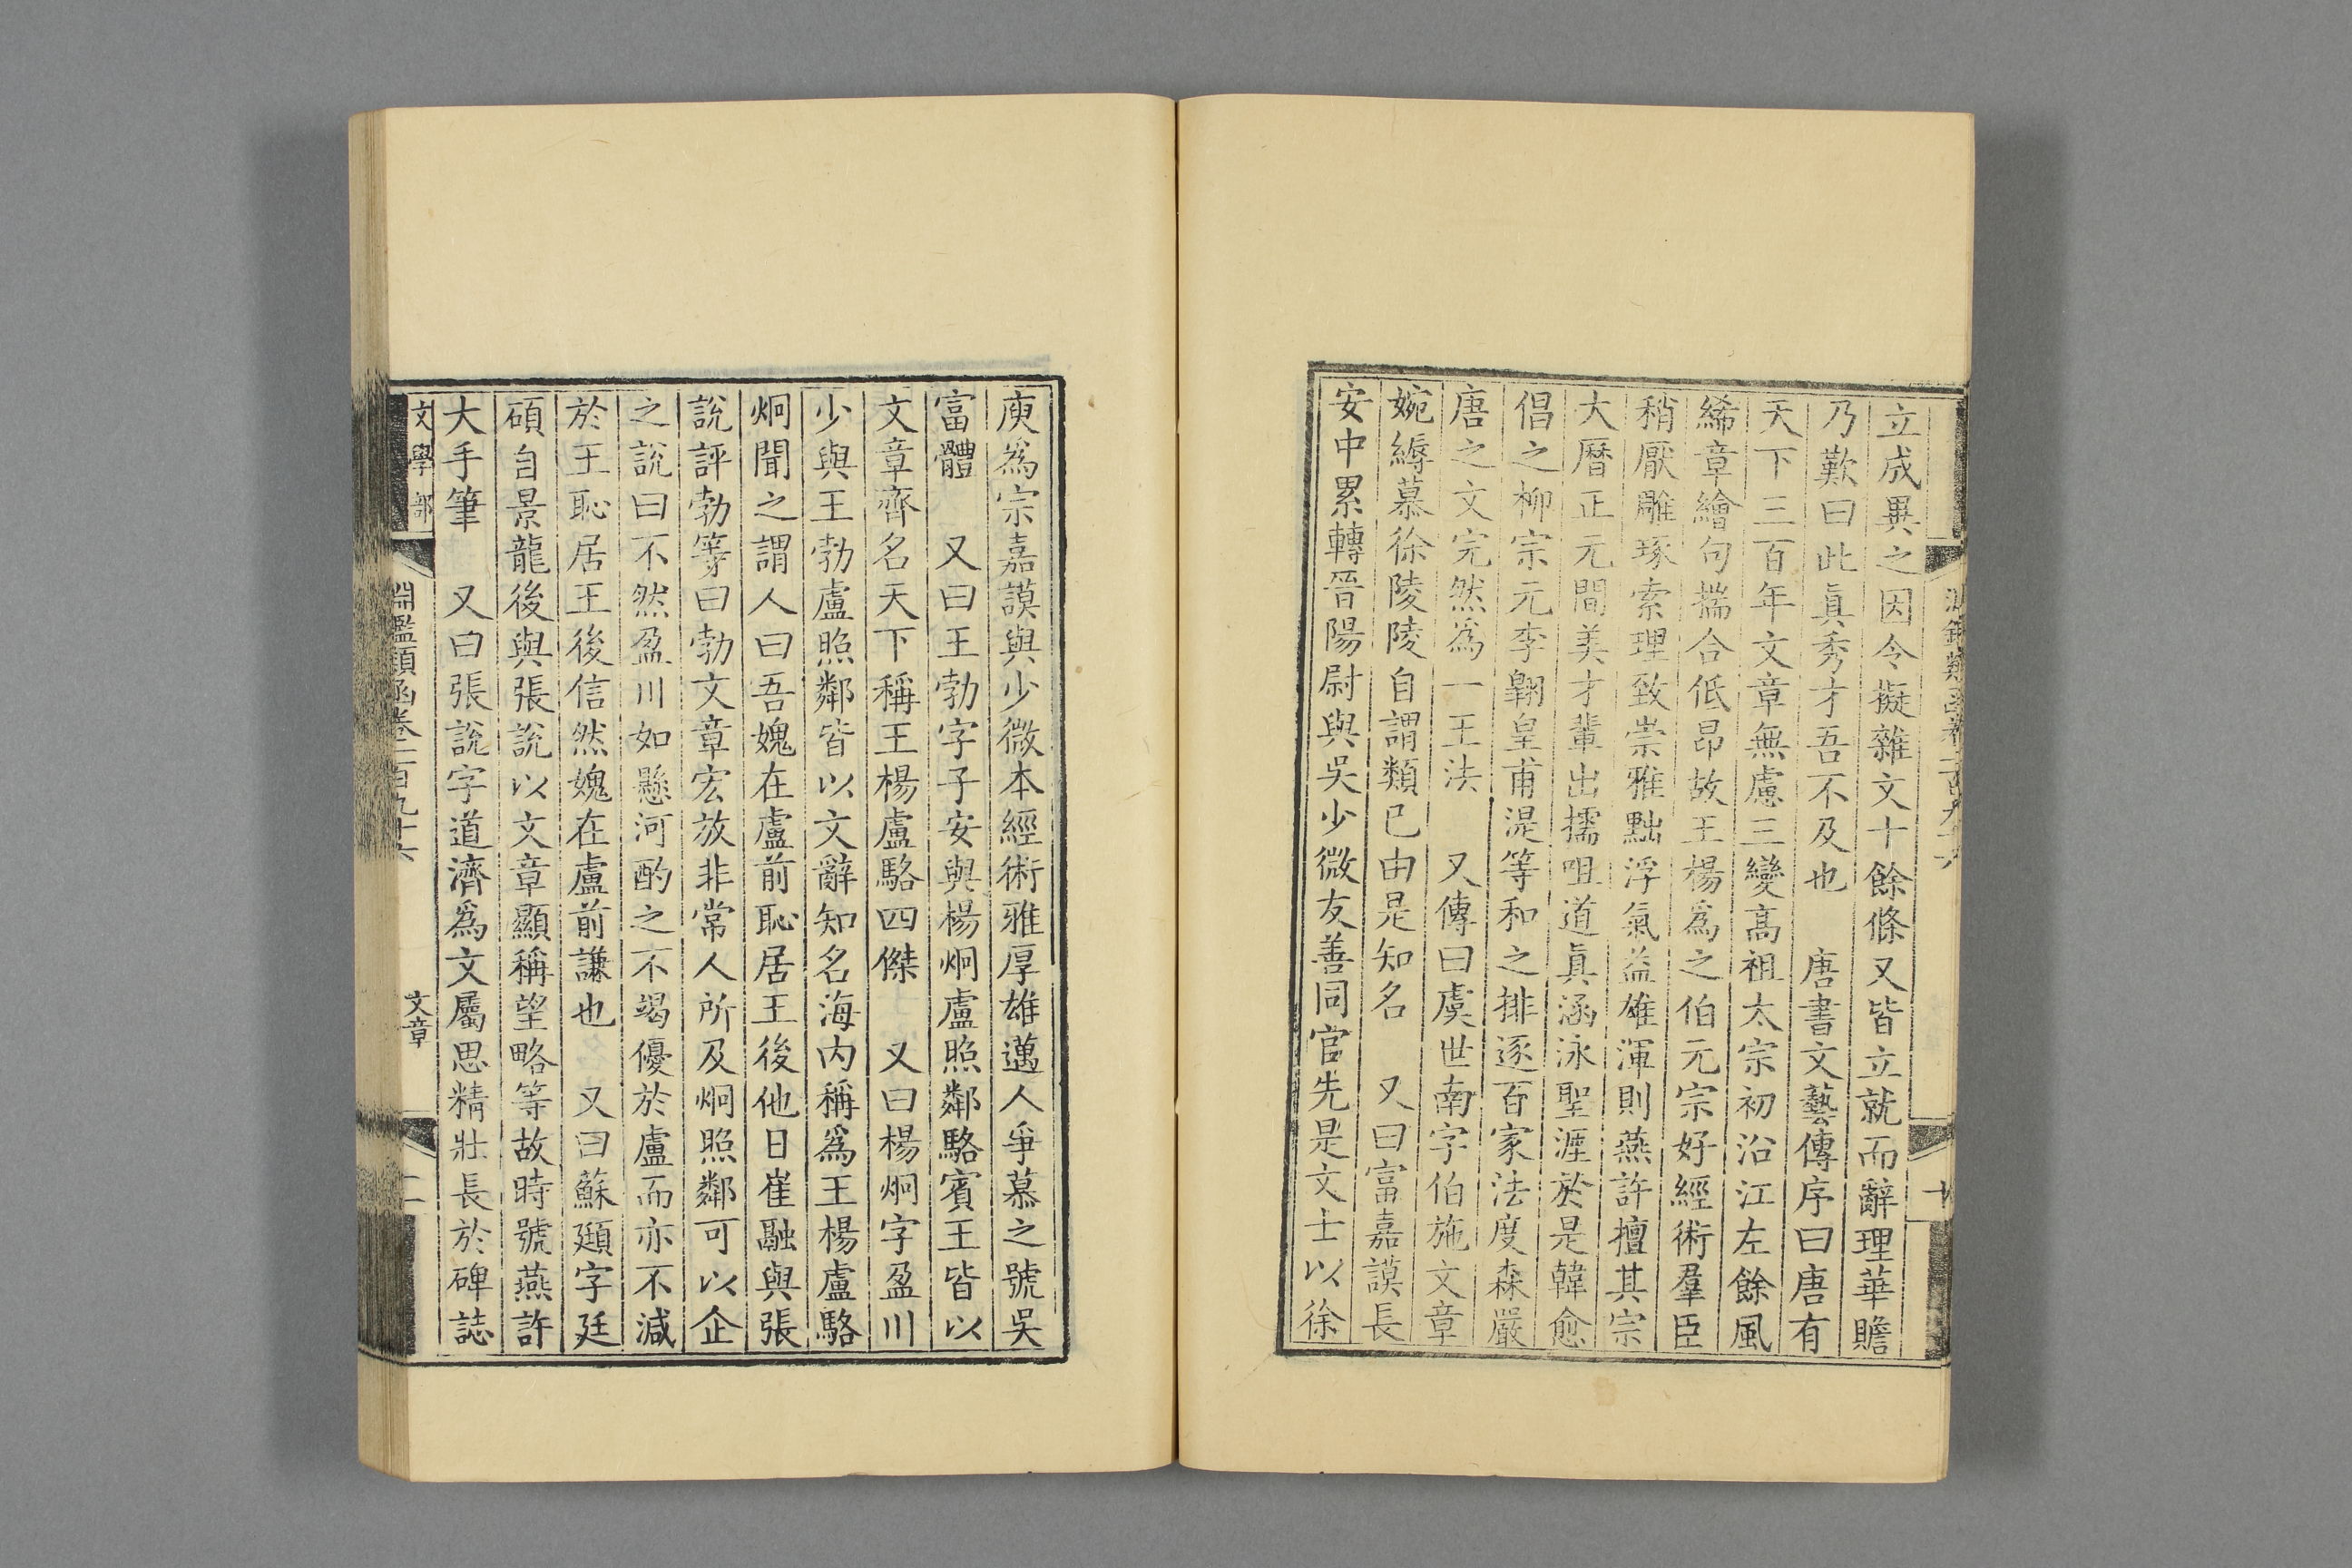 立成異之因令擬雜文十餘條又皆立就而辭理華贍
乃歎曰此眞秀才吾不及也　唐書文藝傳序曰唐有
天下三百年文章無慮三變高祖太宗初沿江左餘風
絺章繪句揣合低昂故王楊爲之伯元宗好經術羣臣
稍厭雕琢索理致崇雅黜浮氣益雄渾則燕許擅其宗
大曆正元間美才輩出擩咀道眞涵泳聖涯於是韓愈
倡之柳宗元李翺皇甫湜等和之排逐百家法度森嚴
唐之文完然爲一王法　又傳曰虞世南字伯施文章
婉縟慕徐陵陵自謂類已由是知名　又曰富嘉謨長
安中累轉晉陽尉與吳少微友善同官先是文士以徐
庾爲宗嘉謨與少微本經術雅厚雄邁人爭慕之號吳
富體　又曰王勃字子安與楊炯盧照鄰駱賓王皆以
文章齊名天下稱王楊盧駱四傑　又曰楊炯字盈川
少與王勃盧照鄰皆以文辭知名海内稱爲王楊盧駱
炯聞之謂人曰吾媿在盧前恥居王後他日崔融與張
說評勃等曰勃文章宏放非常人所及炯照鄰可以企
之說曰不然盈川如懸河酌之不竭優於盧而亦不減
於王恥居王後信然媿在盧前謙也　又曰蘇頲字廷
碩自景龍後與張說以文章顯稱望略等故時號燕許
大手筆　又曰張說字道濟爲文屬思精壯長於碑誌
文學部　淵鑑類函卷二百九十六　文章